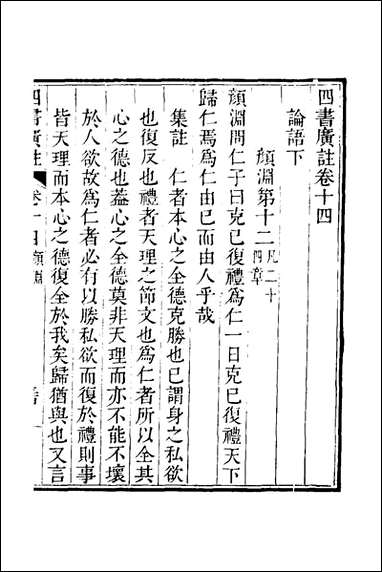 四書廣註卷十四
論語下
顏淵第十二凡二十四章
顏淵問仁子曰克己復禮爲仁一日克己復禮天下
歸仁焉爲仁由己而由人乎哉
集註　仁者本心之全德克勝也己謂身之私欲
也復反也禮者天理之節文也爲仁者所以全其
心之德也葢心之全德莫非天理而亦不能不壞
於人欲故爲仁者必有以勝私欲而復於禮則事
皆天理而本心之德復全於我矣歸猶與也又言
四書廣註　卷十四顏淵　一